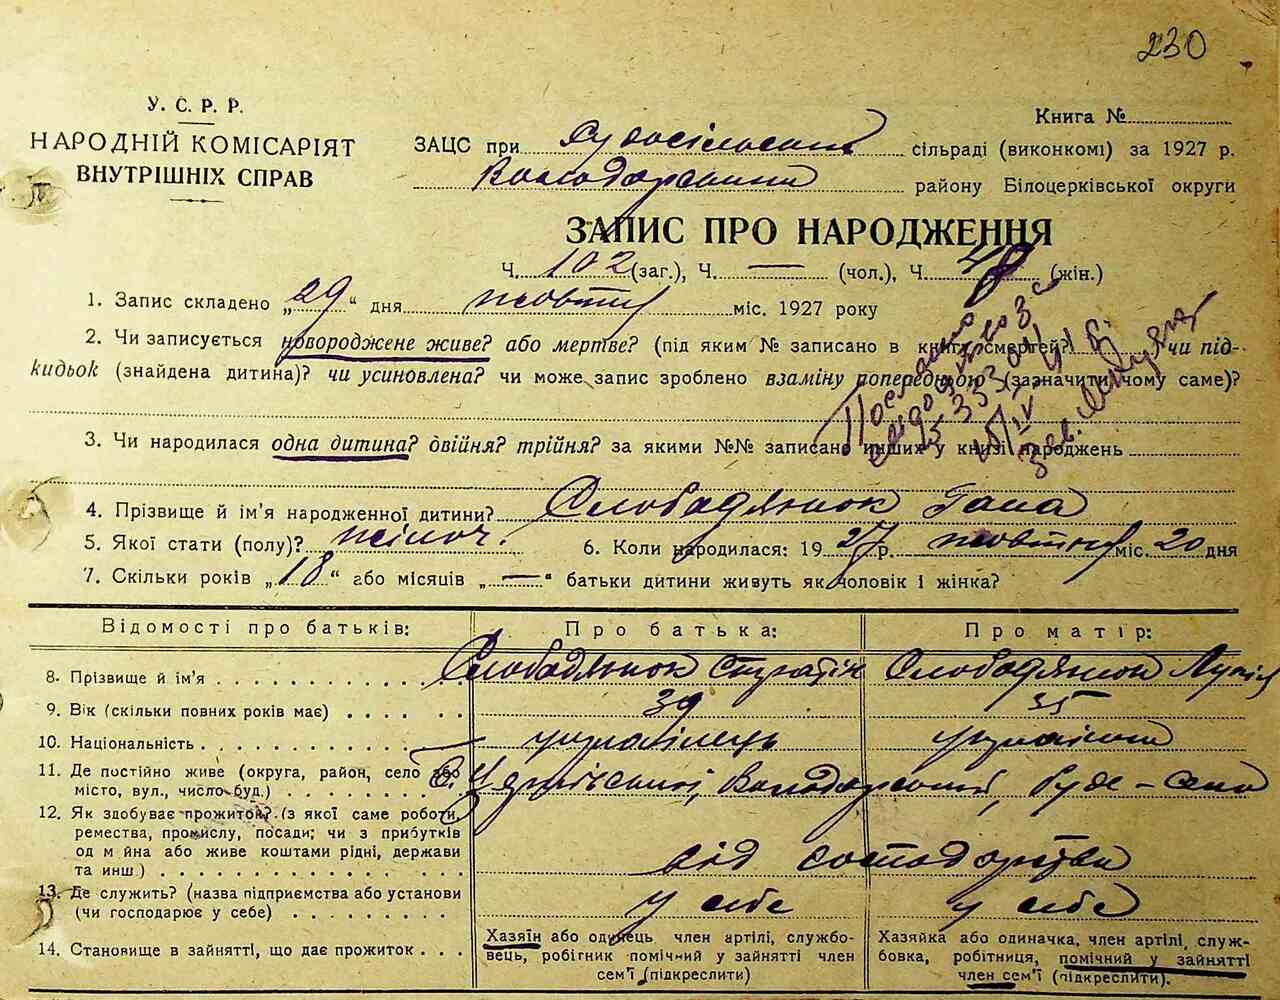 230
У. С. Р. Р.
НАРОДНІЙ КОМІСАРІЯТ
ВНУТРІШНІХ СПРАВ
Книга №
ЗАЦС при Рудосільській сільраді (виконкомі) за 1927 р.
Володарський району Білоцерківської округи
ЗАПИС ПРО НАРОДЖЕННЯ
Ч. 102 (заг.), Ч. — (чол.), Ч. 48 (жін.)
1. Запис складено „29“ дня жовтня міс. 1927 року
2. Чи записується новороджене живе? або мертве? (під яким № записано в книгу смертей?) чи під-
кидьок (знайдена дитина)? чи усиновлена? чи може запис зроблено взаміну попередньою (зазначити чому саме)?
3. Чи народилася одна дитина? двійня? трійня? за якими №№ записано инших у книзі народжень
4. Прізвище й ім'я народженної дитини? Слободянюк Гана
5. Якої стати (полу)? жіноч. 6. Коли народилася: 1927 р. жовтня міс. 20 дня
7. Скільки років „18“ або місяців „—“ батьки дитини живуть як чоловік і жінка?
Відомості про батьків: Про батька: Про матір:
8. Прізвище й ім'я Слободянюк Слободянюк
9. Вік (скільки повних років має) 39 35
10. Національність українець українка
11. Де постійно живе (округа, район, село або
місто, вул., число буд.) Володарський, Руде-Село
12. Як здобуває прожиток? (з якої саме роботи,
ремества, промислу, посади; чи з прибутків
од м йна або живе коштами рідні, держави
та инш.) від господарства
13. Де служить? (назва підприємства або установи
(чи господарює у себе) у себе у себе
14. Становище в зайнятті, що дає прожиток
Хазяїн або одинець член артілі, службо-
вець, робігник помічний у зайнятті член
сем'ї (підкреслити)
Хазяйка або одиначка, член артілі, служ-
бовка, робітниця, помічний у зайнятті
член сем'ї (підкреслити).